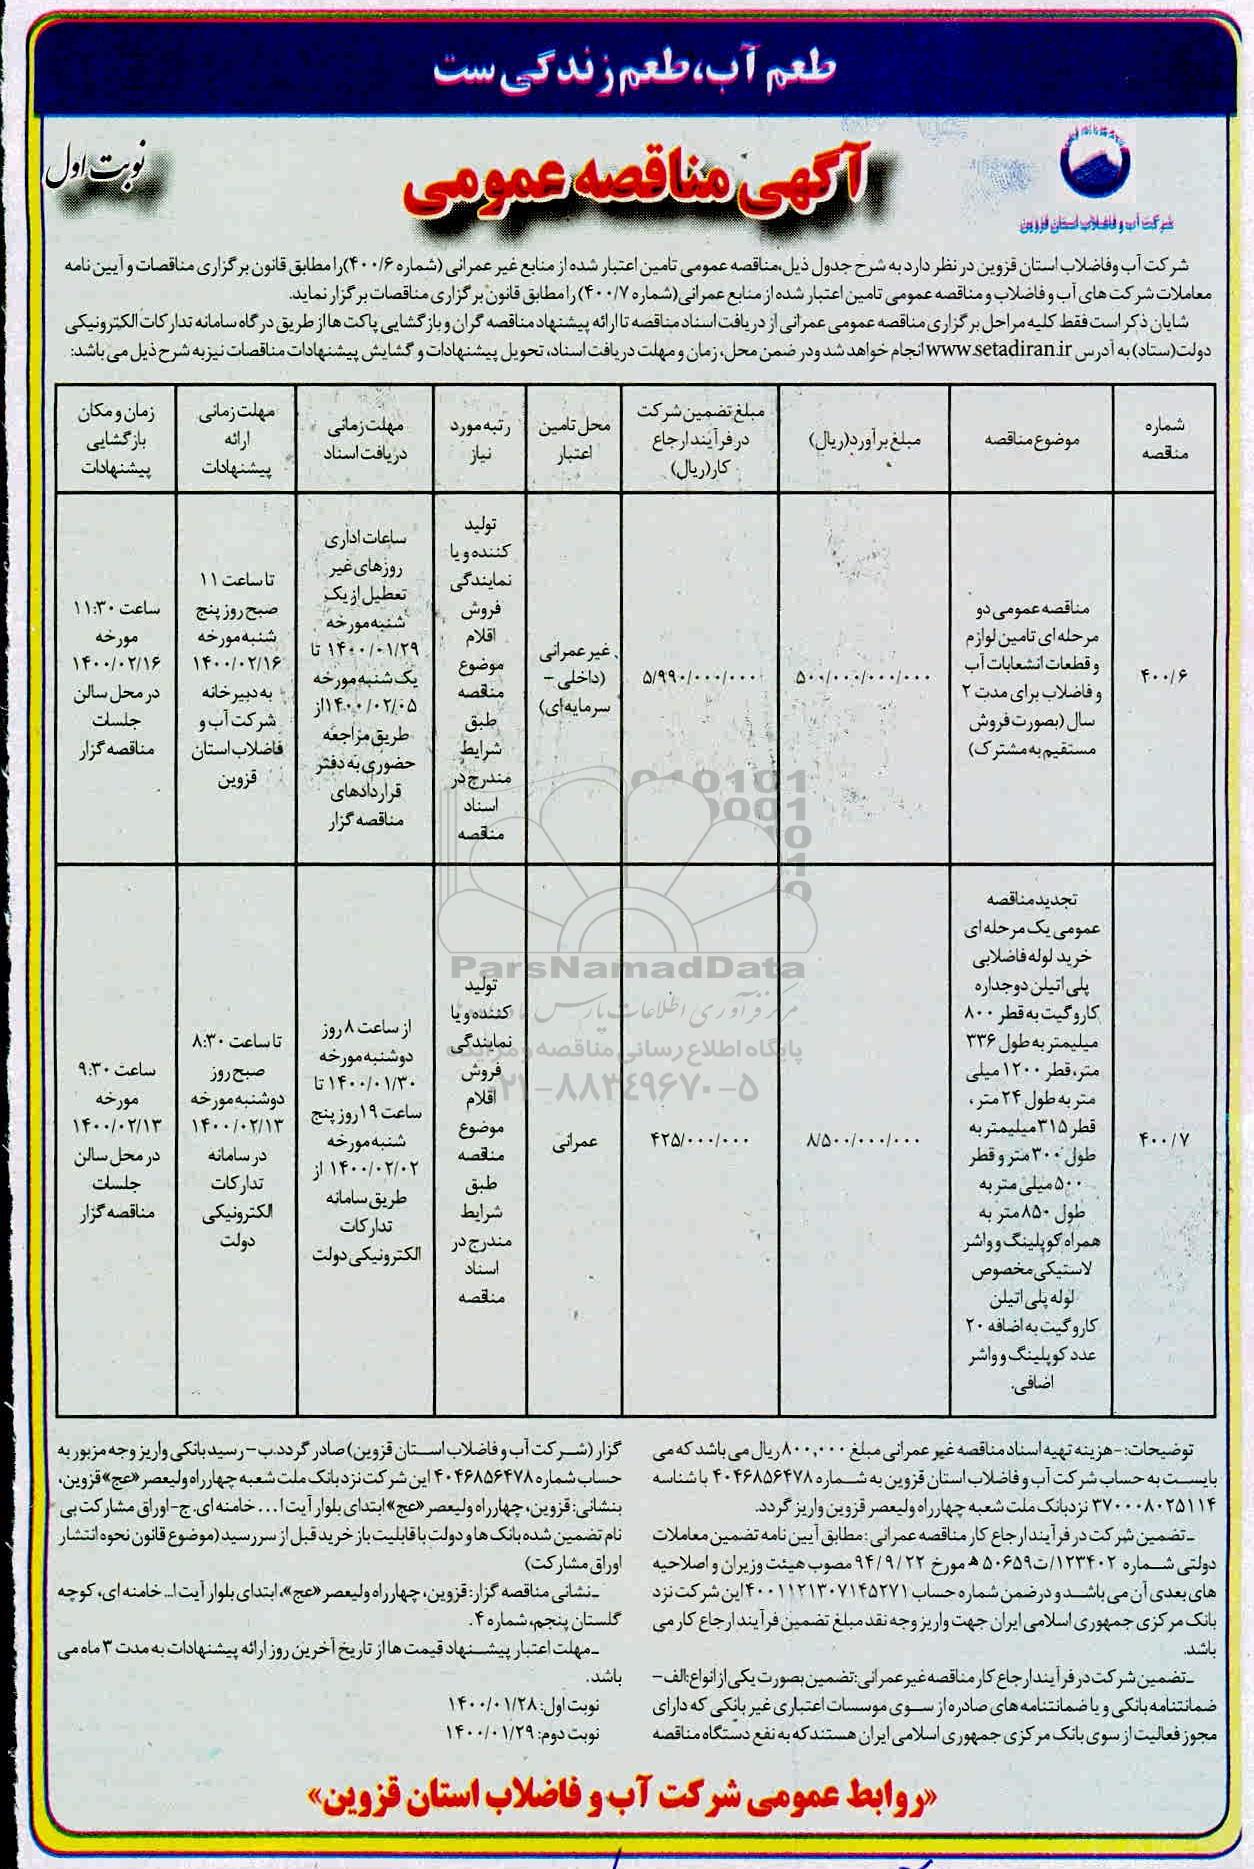 طعم آب، طعم زندگی ست
نوبت اول
آگهی مناقصه عمومی
شرکت آب و فاضلاب استان قزوین
شرکت آب وفاضلاب استان قزوین در نظر دارد به شرح جدول ذیل،مناقصه عمومی تامین اعتبار شده از منابع غیر عمرانی (شماره ۴۰۰/۶)را مطابق قانون برگزاری مناقصات و آیین نامه
معاملات شرکت های آب و فاضلاب و مناقصه عمومی تامین اعتبار شده از منابع عمرانی(شماره ۴۰۰/۷) را مطابق قانون برگزاری مناقصات برگزار نماید.
شایان ذکر است فقط کلیه مراحل برگزاری مناقصه عمومی عمرانی از دریافت اسناد مناقصه تا ارائه پیشنهاد مناقصه گران و بازگشایی پاکت ها از طریق درگاه سامانه تدارکات الکترونیکی
دولت(ستاد) به آدرس www.setadiran.ir انجام خواهد شد ودر ضمن محل، زمان و مهلت دریافت اسناد، تحویل پیشنهادات و گشایش پیشنهادات مناقصات نیز به شرح ذیل می باشد:
شماره
مناقصه
موضوع مناقصه
مبلغ برآورد(ریال)
مبلغ تضمین شرکت
در فرآیند ارجاع
کار(ریال)
محل تامین
اعتبار
رتبه مورد
نیاز
مهلت زمانی
دریافت اسناد
مهلت زمانی
ارائه
پیشنهادات
زمان و مکان
بازگشایی
پیشنهادات
۴۰۰/۶
مناقصه عمومی دو
مرحله ای تامین لوازم
و قطعات انشعابات آب
و فاضلاب برای مدت ۲
سال (بصورت فروش
مستقیم به مشترک)
۵۰۰/۰۰۰/۰۰۰/۰۰۰
۵/۹۹۰/۰۰۰/۰۰۰
غیر عمرانی
(داخلی -
سرمایه ای)
تولید
کننده و یا
نمایندگی
فروش
اقلام
موضوع
مناقصه
طبق
شرایط
مندرج در
اسناد
مناقصه
ساعات اداری
روزهای غیر
تعطیل از یک
شنبه مورخه
۱۴۰۰/۰۱/۲۹ تا
یک شنبه مورخه
۱۴۰۰/۰۲/۰۵از
طریق مراجعه
حضوری به دفتر
قراردادهای
مناقصه گزار
تا ساعت ۱۱
صبح روز پنج
شنبه مورخه
۱۴۰۰/۰۲/۱۶
به دبیرخانه
شرکت آب و
فاضلاب استان
قزوین
ساعت ۱۱:۳۰
مورخه
۱۴۰۰/۰۲/۱۶
در محل سالن
جلسات
مناقصه گزار
۴۰۰/۷
تجدید مناقصه
عمومی یک مرحله ای
خرید لوله فاضلابی
پلی اتیلن دوجداره
کاروگیت به قطر ۸۰۰
میلیمتر به طول ۳۳۶
متر، قطر ۱۲۰۰ میلی
متر به طول ۲۴ متر ،
قطر ۳۱۵ میلیمتر به
طول ۳۰۰ متر و قطر
۵۰۰ میلی متر به
طول ۸۵۰ متر به
همراه کوپلینگ و واشر
لاستیکی مخصوص
لوله پلی اتیلن
کاروگیت به اضافه ۲۰
عدد کوپلینگ و واشر
اضافی.
۸/۵۰۰/۰۰۰/۰۰۰
۴۲۵/۰۰۰/۰۰۰
عمرانی
تولید
کننده و یا
نمایندگی
فروش
اقلام
موضوع
مناقصه
طبق
شرایط
مندرج در
اسناد
مناقصه
از ساعت ۸ روز
دوشنبه مورخه
۱۴۰۰/۰۱/۳۰ تا
ساعت ۱۹ روز پنج
شنبه مورخه
۱۴۰۰/۰۲/۰۲ از
طریق سامانه
تدارکات
الکترونیکی دولت
تا ساعت ۸:۳۰
صبح روز
دوشنبه مورخه
۱۴۰۰/۰۲/۱۳
در سامانه
تدارکات
الکترونیکی
دولت
ساعت ۹:۳۰
مورخه
۱۴۰۰/۰۲/۱۳
در محل سالن
جلسات
مناقصه گزار
ParsNamadData
مرکز فرآوری اطلاعات پارس
پایگاه اطلاع رسانی مناقصه و مزایده
۰۲۱-۸۸۳۴۹۶۷۰-۵
توضیحات: -هزینه تهیه اسناد مناقصه غیر عمرانی مبلغ ۸۰۰,۰۰۰ ریال می باشد که می
بایست به حساب شرکت آب و فاضلاب استان قزوین به شماره ۴۰۴۶۸۵۶۴۷۸ با شناسه
۳۷۰۰۰۸۰۲۵۱۱۴ نزد بانک ملت شعبه چهارراه ولیعصر قزوین واریز گردد.
-تضمین شرکت در فرآیند ارجاع کار مناقصه عمرانی :مطابق آیین نامه تضمین معاملات
دولتی شماره ۱۲۳۴۰۲/ت۵۰۶۵۹ ه مورخ ۹۴/۹/۲۲ مصوب هیئت وزیران و اصلاحیه
های بعدی آن می باشد و در ضمن شماره حساب ۴۰۰۱۱۲۱۳۰۷۱۴۵۲۷۱ این شرکت نزد
بانک مرکزی جمهوری اسلامی ایران جهت واریز وجه نقد مبلغ تضمین فرآیند ارجاع کار می
باشد.
-تضمین شرکت در فرآیند ارجاع کار مناقصه غیر عمرانی:تضمین بصورت یکی از انواع:الف-
ضمانتنامه بانکی و یا ضمانتنامه های صادره از سوی موسسات اعتباری غیر بانکی که دارای
مجوز فعالیت از سوی بانک مرکزی جمهوری اسلامی ایران هستند که به نفع دستگاه مناقصه
گزار (شرکت آب و فاضلاب استان قزوین) صادر گردد.ب- رسید بانکی واریز وجه مزبور به
حساب شماره ۴۰۴۶۸۵۶۴۷۸ این شرکت نزد بانک ملت شعبه چهارراه ولیعصر «عج» قزوین،
بنشانی: قزوین، چهارراه ولیعصر «عج» ابتدای بلوار آیت ا... خامنه ای.ج-اوراق مشارکت بی
نام تضمین شده بانک ها و دولت با قابلیت باز خرید قبل از سررسید (موضوع قانون نحوه انتشار
اوراق مشارکت)
-نشانی مناقصه گزار: قزوین، چهارراه ولیعصر «عج»، ابتدای بلوار آیت ا... خامنه ای، کوچه
گلستان پنجم، شماره ۴.
-مهلت اعتبار پیشنهاد قیمت ها از تاریخ آخرین روز ارائه پیشنهادات به مدت ۳ ماه می
باشد.
نوبت اول: ۱۴۰۰/۰۱/۲۸
نوبت دوم: ۱۴۰۰/۰۱/۲۹
«روابط عمومی شرکت آب و فاضلاب استان قزوین»